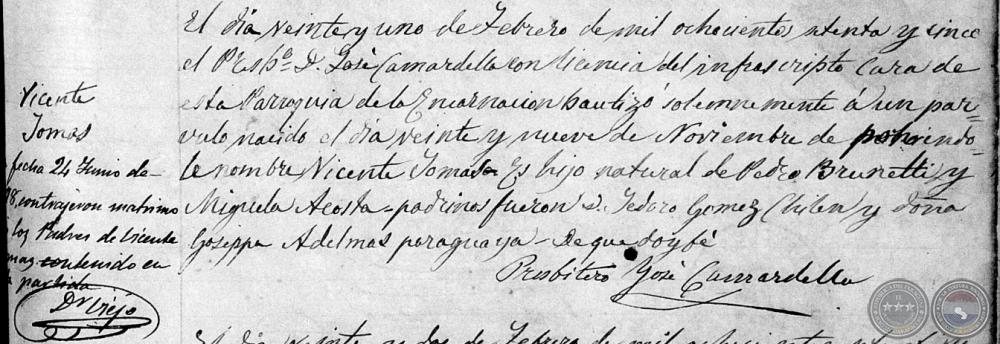 El día veinte y uno de Febrero de mil ochocientos setenta y cinco
el Presbº D. José Camardella con licencia del infrascripto Cura de
esta Parroquia de la Encarnacion bautizó solemnemente á un par-
vulo nacido el día veinte y nueve de Noviembre de poniendo-
le nombre Vicente Tomas Es hijo natural de Pedro Brunetti y
Miguela Acosta - padrinos fueron D. Tedoro Gomez Chilen y doña
Goseppa Adelmas paraguaya - De que doy fé
Presbitero José Camardella
Vicente
Tomas
fecha 24 Junio de
98, contrajeron matrimo
los Padres de Vicente
mas contenido en
a partida
Dr Viejo
El día veinte y dos de Febrero de mil